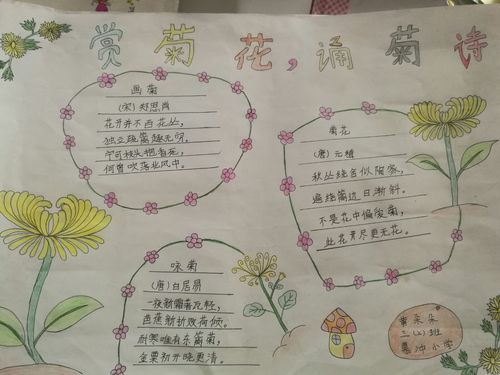 赏菊花,诵菊诗
画菊
(宋)郑思肖
花开并不百花丛,
独立疏篱趣无穷。
宁可枝头抱香死,
何曾吹落北风中。
菊花
(唐)元稹
秋丛绕舍似陶家,
遍绕篱边日渐斜。
不是花中偏爱菊,
此花开尽更无花。
咏菊
(唐)白居易
一夜新霜著瓦轻,
芭蕉新折败荷倾。
耐寒唯有东篱菊,
金粟初开晓更清。
朵朵
班
冲小学